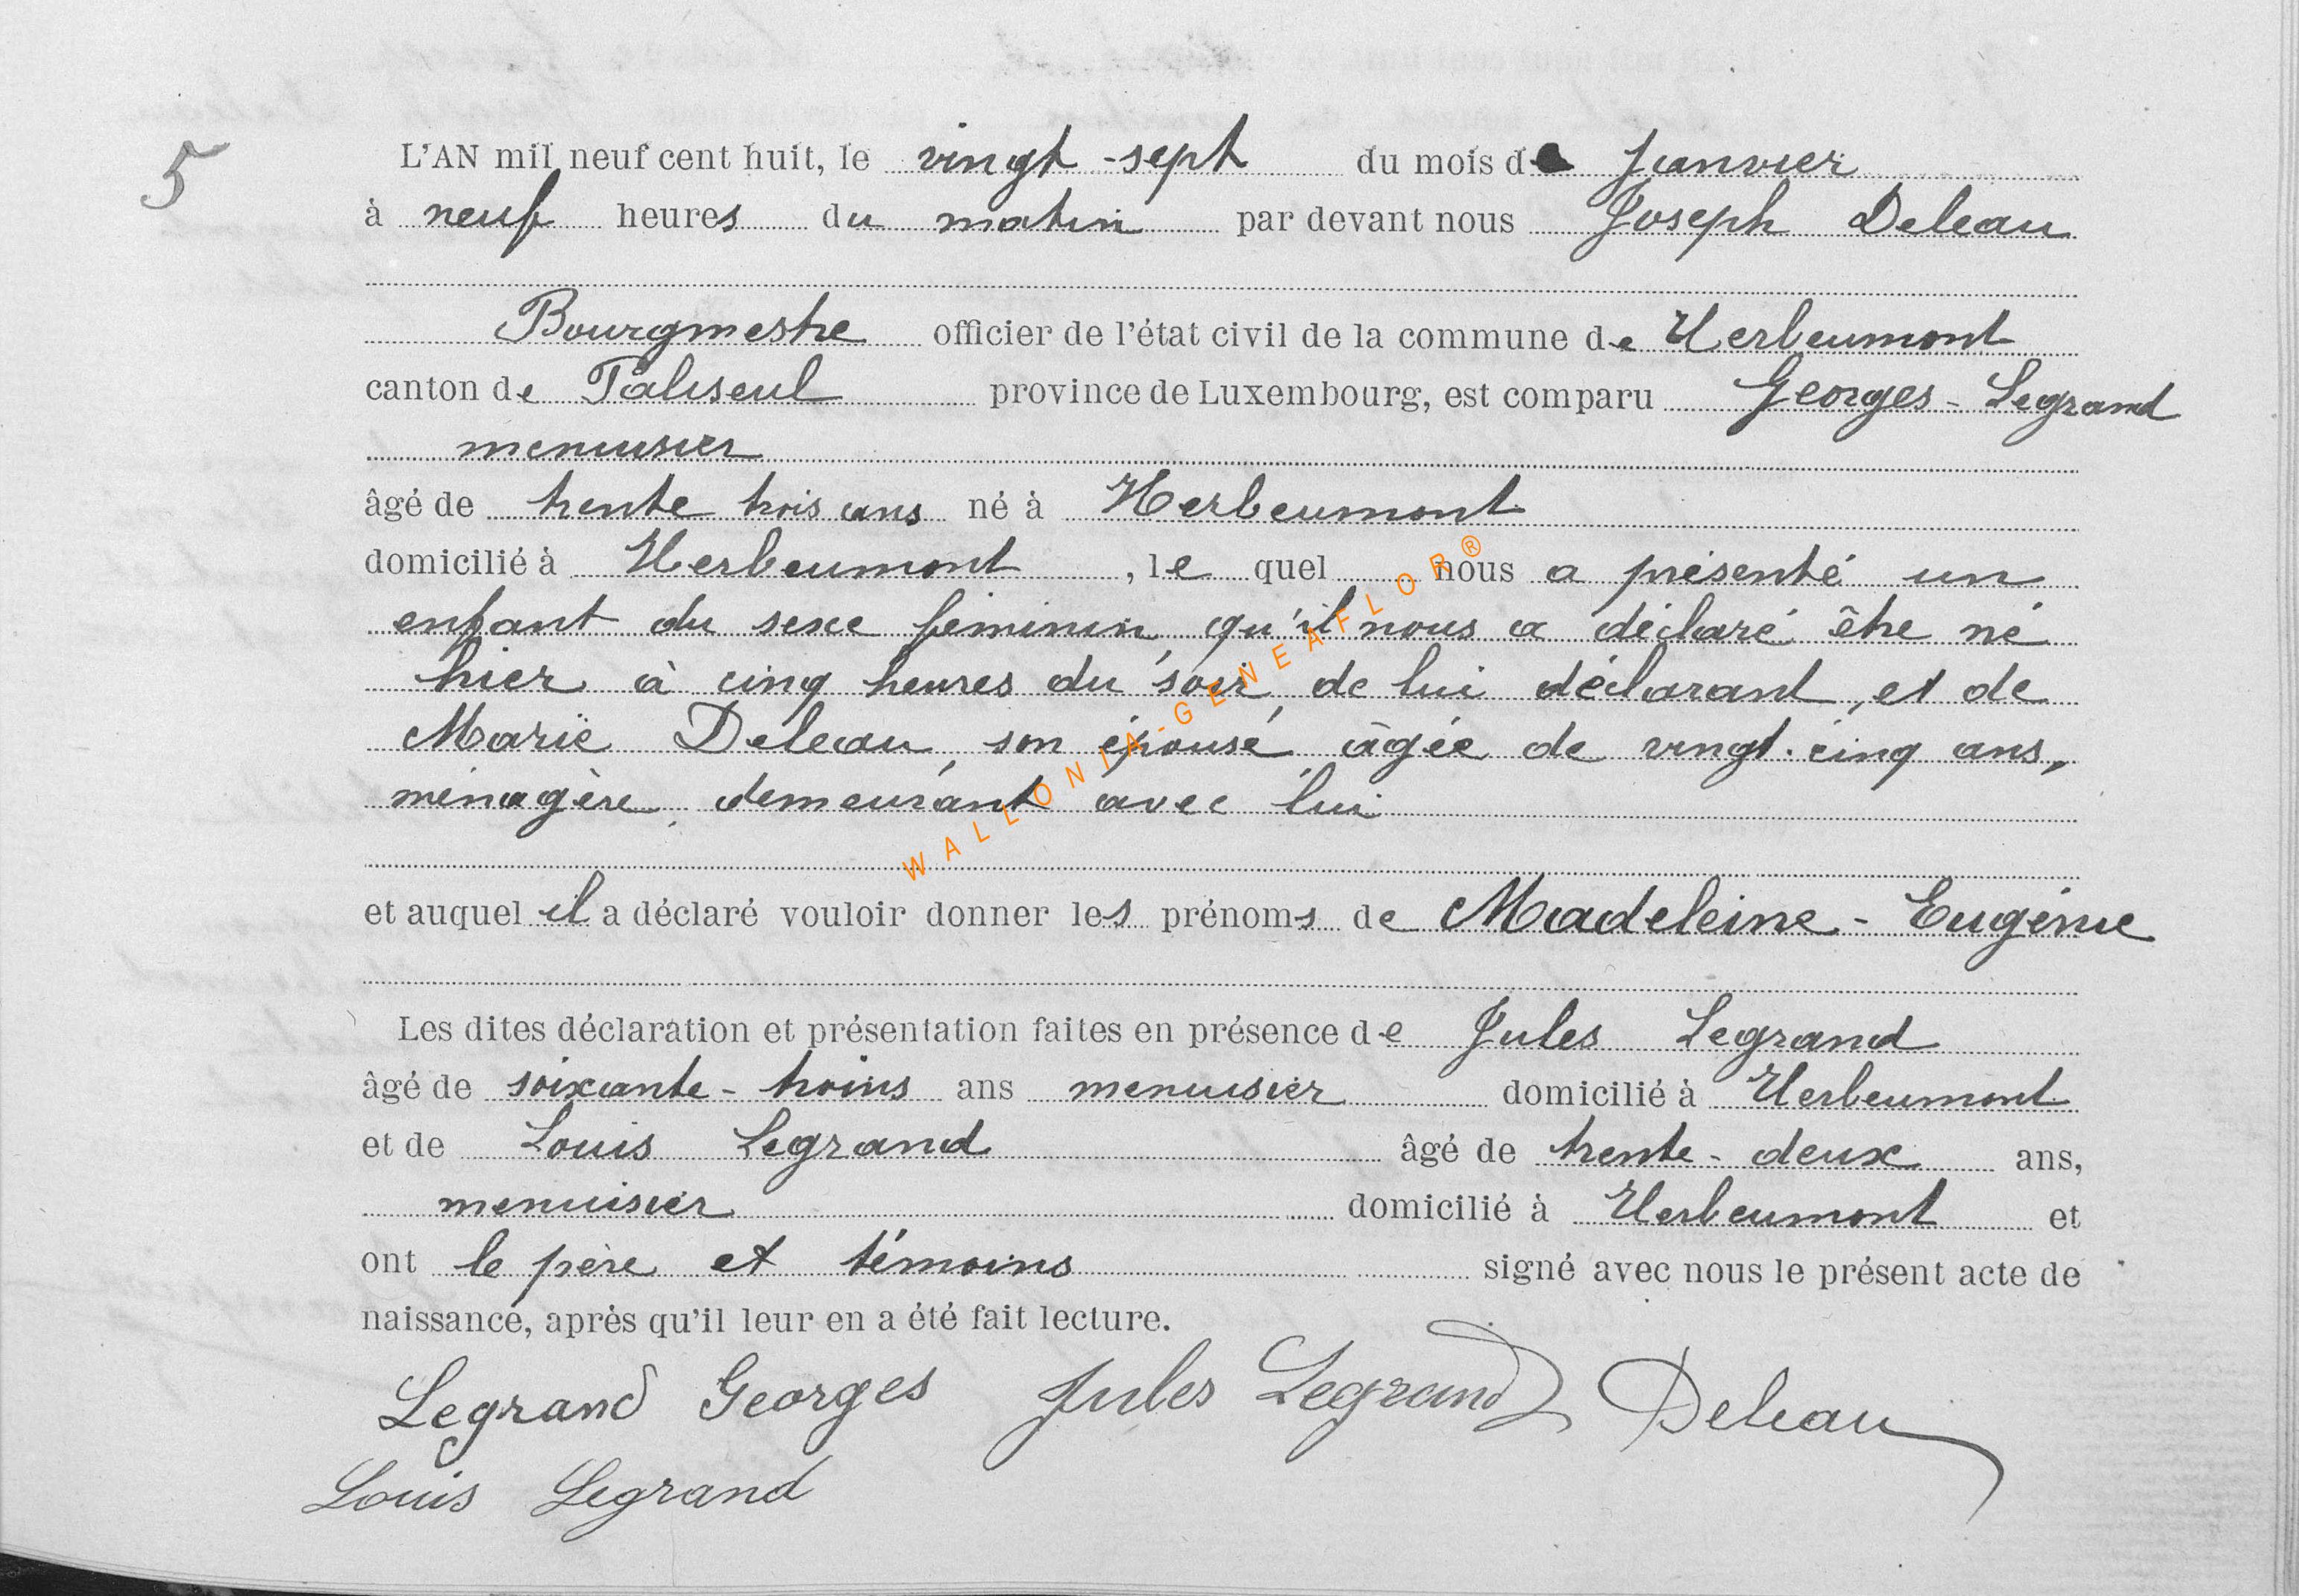 5
L'AN mil neuf cent huit, le vingt-sept du mois de Janvier
à neuf heures du matin par devant nous Joseph Deleau
Bourgmestre officier de l'état civil de la commune de Herbeumont
canton de Paliseul province de Luxembourg, est comparu Georges-Legrand
menuisier
âgé de trente trois ans né à Herbeumont
domicilié à Herbeumont, le quel nous a présenté un
enfant du sexe féminin, qu'il nous a déclaré être né
hier à cinq heures du soir, de lui déclarant, et de
Marie Deleau, son épouse, âgée de vingt-cinq ans,
ménagère, demeurant avec lui
et auquel il a déclaré vouloir donner les prénoms de Madeleine-Eugénie
Les dites déclaration et présentation faites en présence de Jules Legrand
âgé de soixante-troiis ans menuisier domicilié à Herbeumont
et de Louis Legrand âgé de trente-deux ans,
menuisier domicilié à Herbeumont et
ont le père et témoins signé avec nous le présent acte de
naissance, après qu'il leur en a été fait lecture.
Legrand Georges Jules Legrand Deleau
Louis Legrand
WALLONIA-GENEAFLOR®